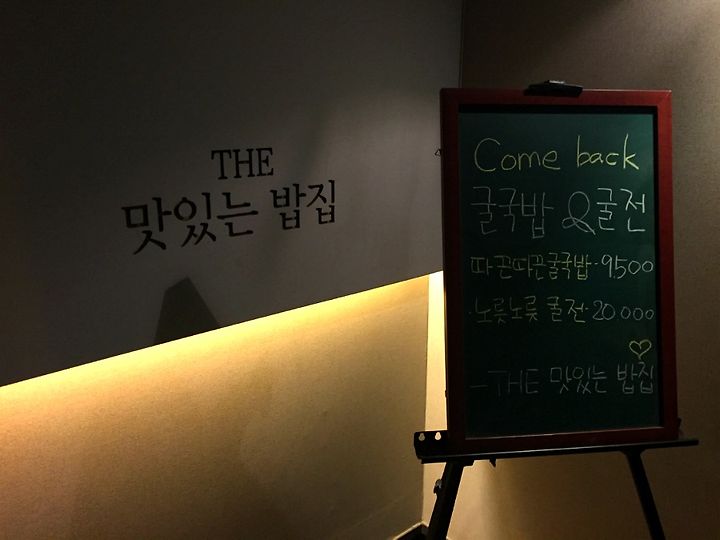 THE
맛있는 밥집
Come back
굴국밥 & 굴전
따끈따끈굴국밥·9500
·노릇노릇 굴전·20000
♡
-THE 맛있는 밥집